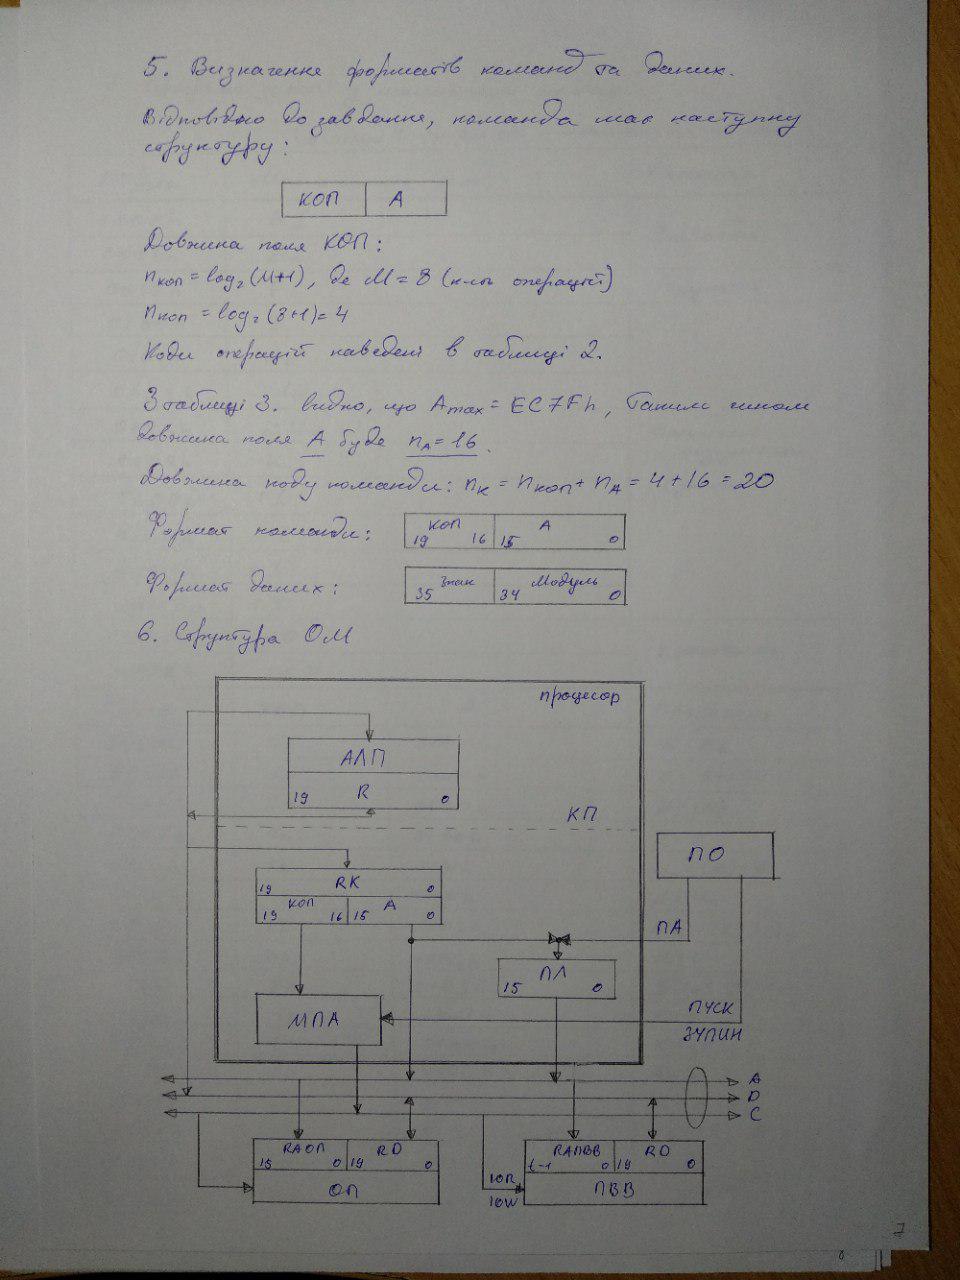 5. Визначення форматів команд та даних.
Відповідно до завдання, команда має наступну
структуру:
КОП А
Довжина поля КОП:
nкоп = log₂(M+1), де M = 8 (к-ть операцій)
nкоп = log₂(8+1) = 4
Коди операцій наведені в таблиці 2.
З таблиці 3. видно, що Amax = EC7Fh, Таким чином
довжина поля А буде nA = 16.
Довжина коду команди: nк = nкоп + nA = 4 + 16 = 20
Формат команди: КОП А
19 16 15 0
Формат даних: Знак Модуль
35 34 0
6. Структура ОМ
процесор
АЛП
19 R 0
КП
ПО
19 RK 0
КОП А
19 16 15 0
ПА
ПЛ
15 0
МПА
ПУСК
ЗУПИН
A
D
C
RAОП RD
15 0 19 0
ОП
RAПВВ RD
t-1 0 19 0
IOR
IOW
ПВВ
7
8